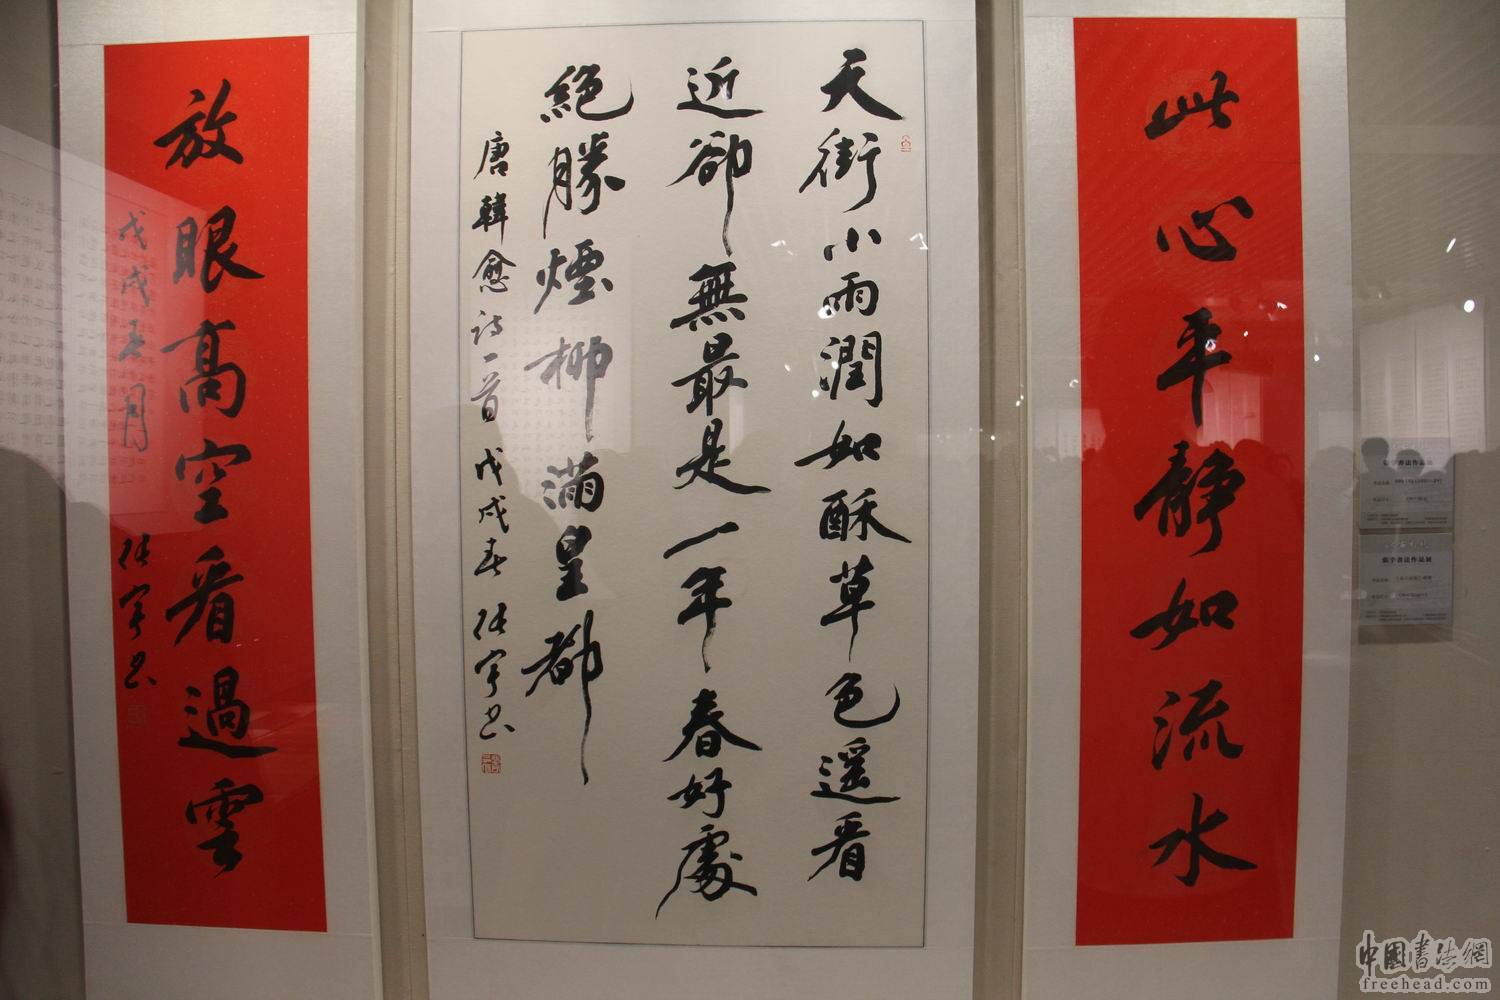 此心平靜如流水
天街小雨潤如酥草色遥看
近卻無最是一年春好處
絕勝煙柳滿皇都
唐韓愈詩一首戊戌春張宇書
放眼高空看過雲
戊戌春月
張宇書
張宇書法作品展
中國書法網
freehead.com